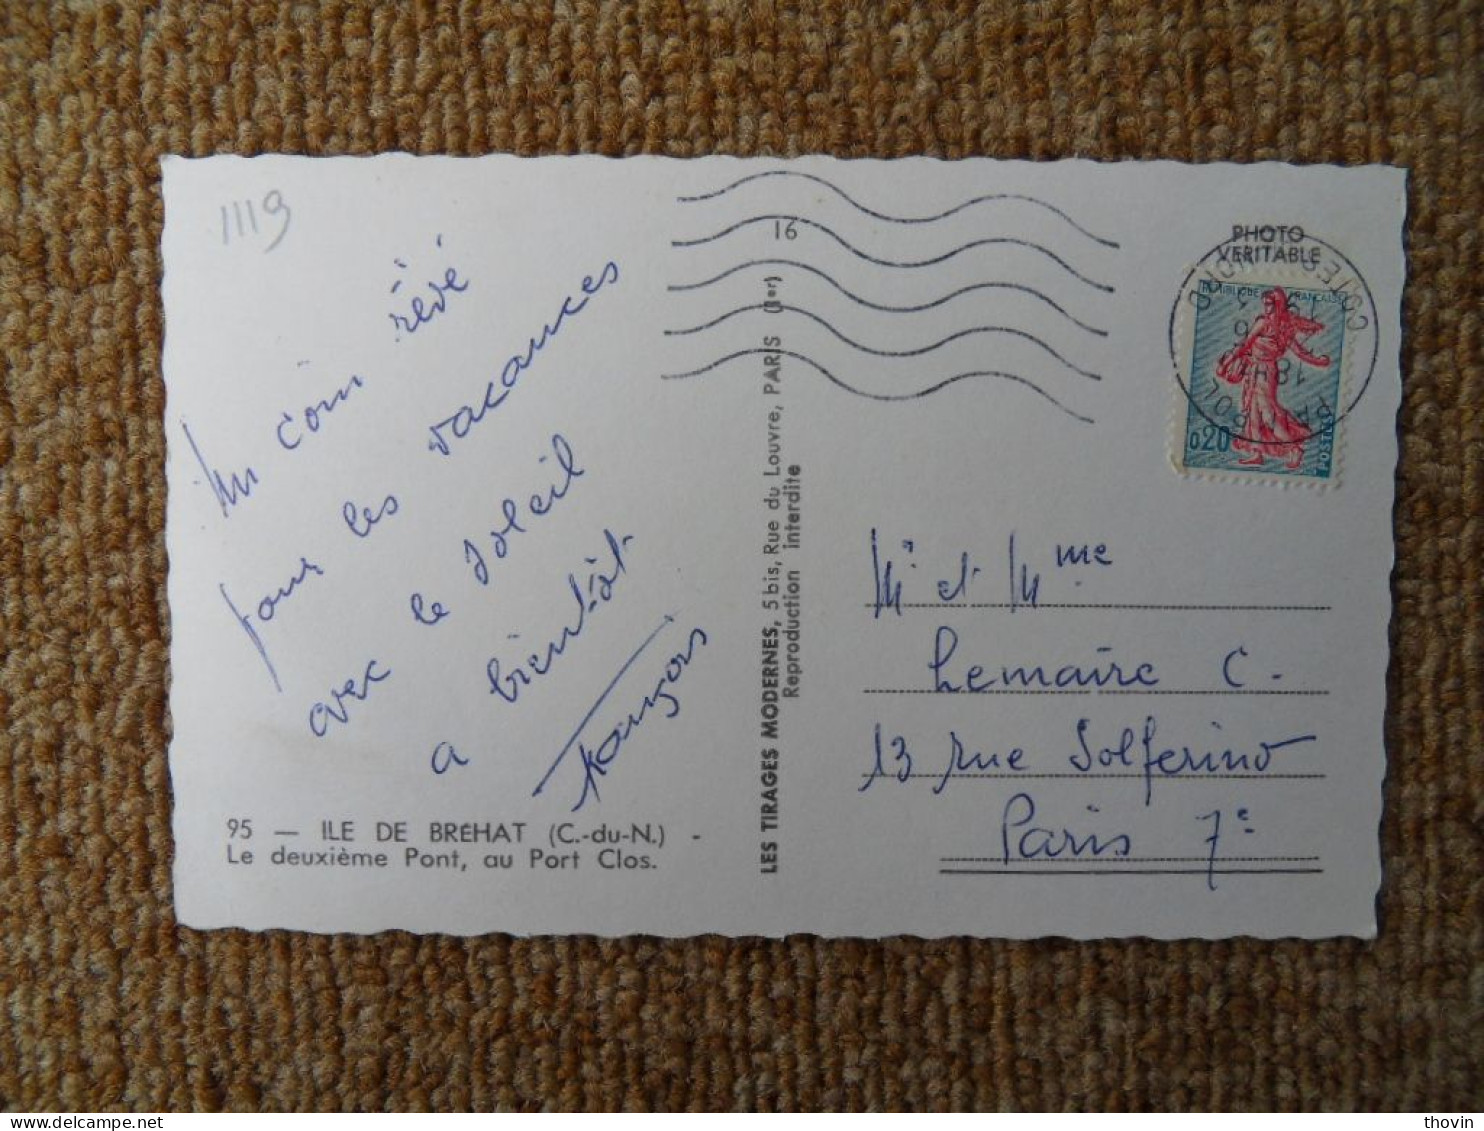 1119
Un coin rêvé
pour les vacances
avec le soleil
a bientôt.
François
95 — ILE DE BRÉHAT (C.-du-N.) -
Le deuxième Pont, au Port Clos.
16
LES TIRAGES MODERNES, 5 bis, Rue du Louvre, PARIS (1er)
Reproduction interdite
PHOTO
VERITABLE
REPUBLIQUE FRANÇAISE
0,20
POSTES
18H
COTES DU NORD
Mr et Mme
Lemaire C.
13 rue Solferino
Paris 7e
thovin